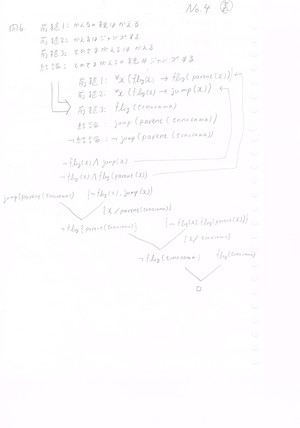 No.4
問6. 前提1: かえるの親はかえる
前提2: かえるはジャンプする
前提3: とのさまがえるはかえる
結論: とのさまがえるの親はジャンプする
前提1: ∀x (frog(x) → frog(parent(x)))
前提2: ∀x (frog(x) → jump(x))
前提3: frog(tonosama)
結論 jump(parent(tonosama))
¬結論: ¬jump(parent(tonosama))
¬frog(x) ∧ jump(x)
¬frog(x) ∧ frog(parent(x))
jump(parent(tonosama)) {¬frog(x), jump(x)}
{x/parent(tonosama)}
¬frog(parent(tonosama)) {¬frog(x), frog(parent(x))}
{x/tonosama}
¬frog(tonosama) frog(tonosama)
□